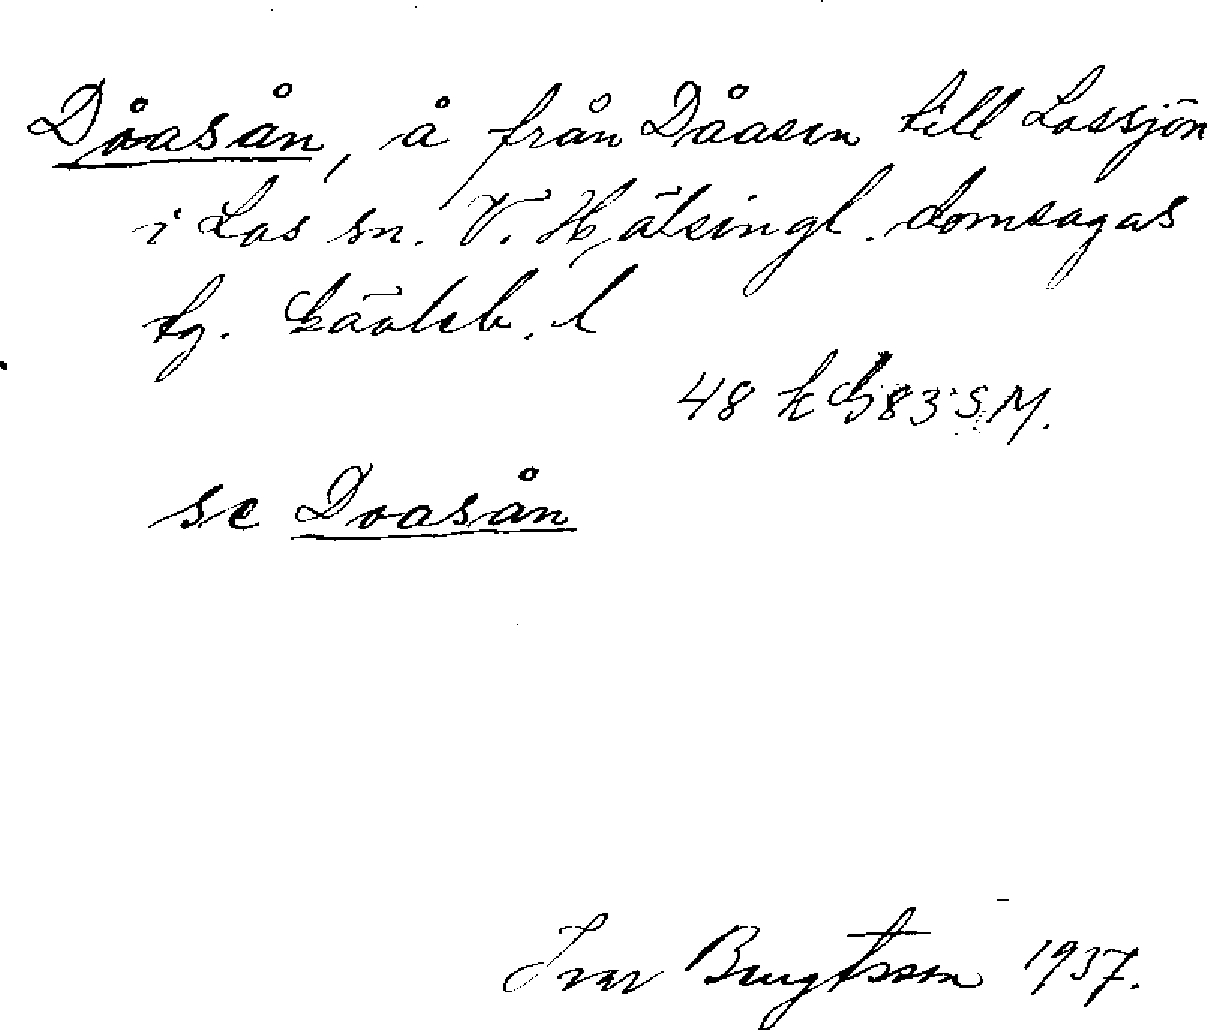 Dåasån, å från Dåasen till Lossjön
i Los sn. V. Hälsingl. domsagas
tg. Gävleb. l
48 k G 83 S.M.
se Doasån
Ivar Bengtsson 1937.